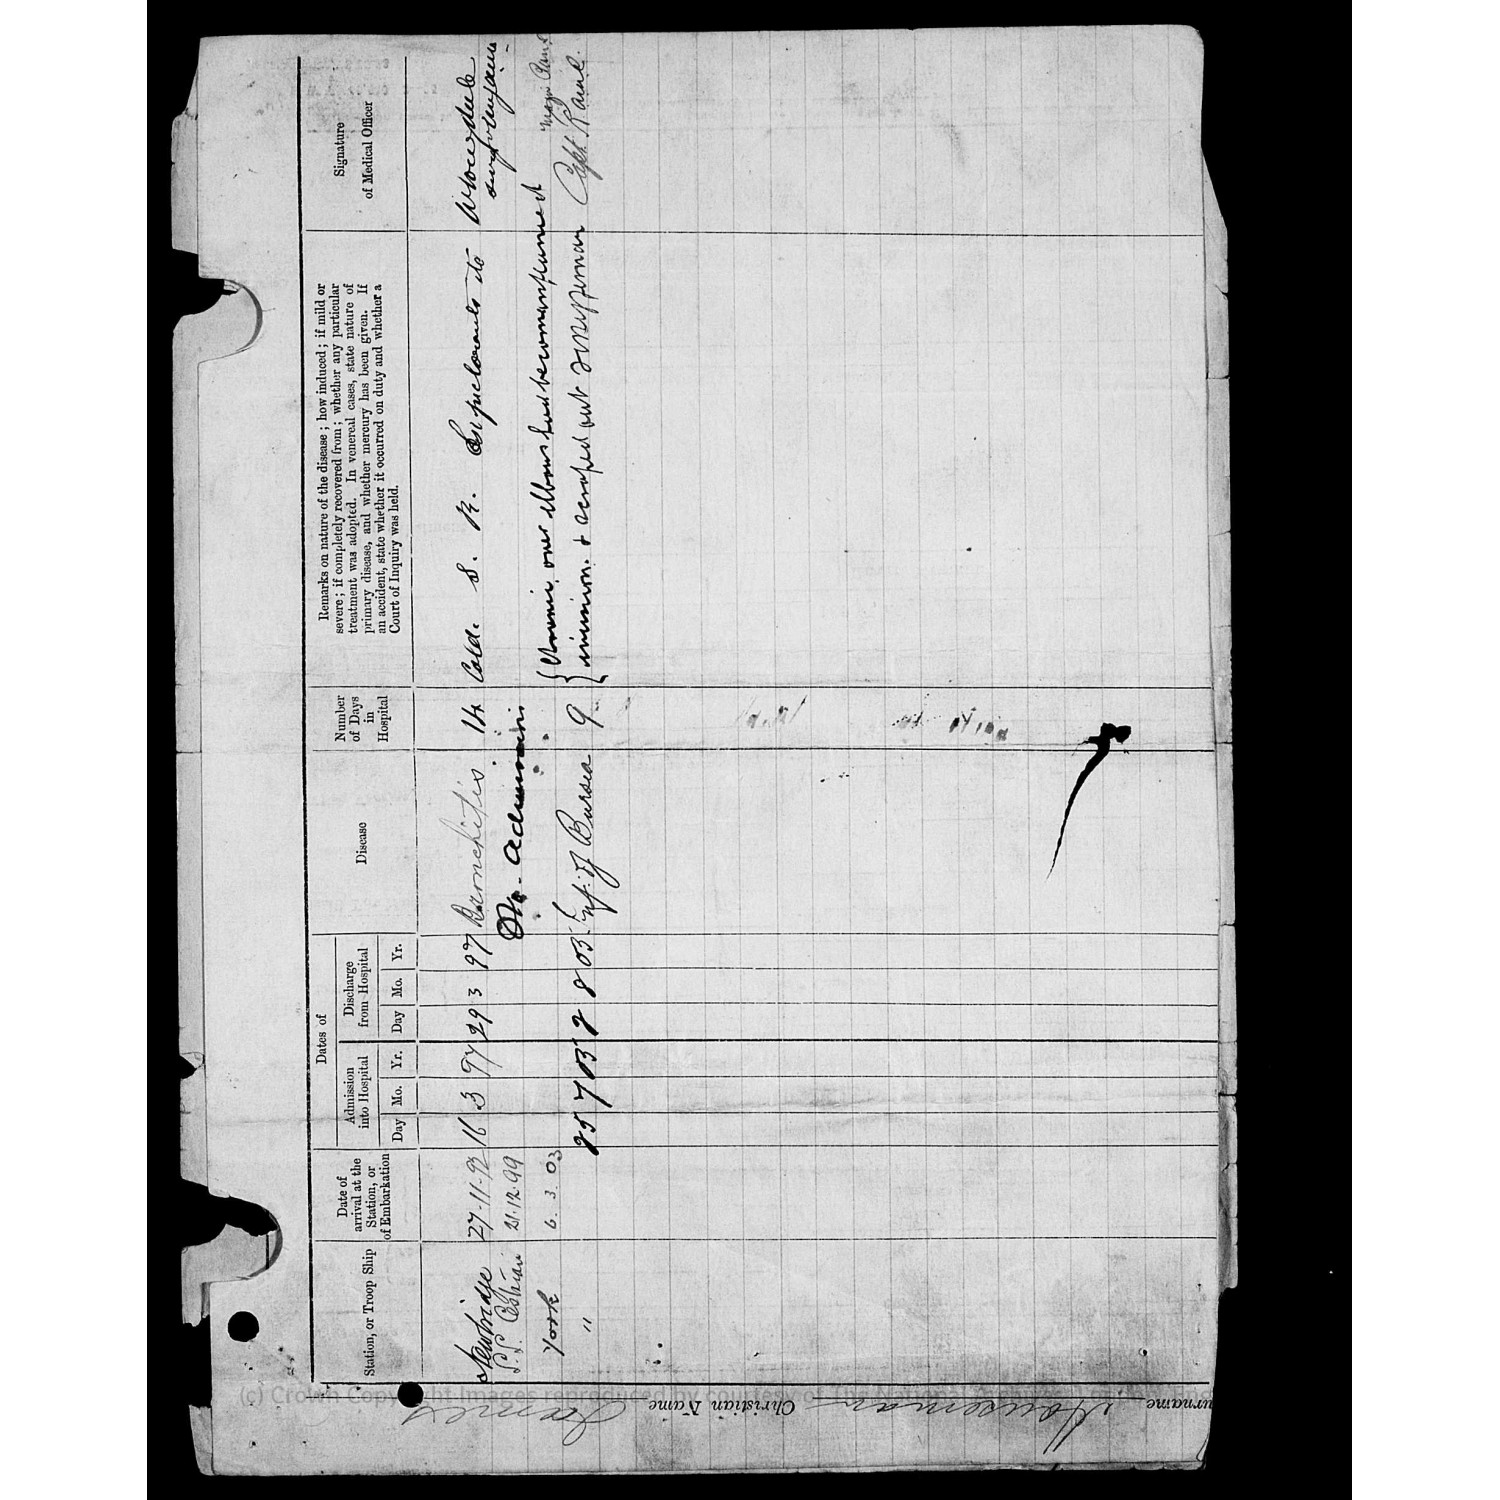 Surname Houseman Christian Name James
Station, or Troop Ship
Date of
arrival at the
Station, or
of Embarkation
Dates of
Admission
into Hospital
Day Mo. Yr.
Discharge
from Hospital
Day Mo. Yr.
Disease
Number
of Days
in
Hospital
Remarks on nature of the disease; how induced; if mild or
severe; if completely recovered from; whether any particular
treatment was adopted. In venereal cases, state nature of
primary disease, and whether mercury has been given. If
an accident, state whether it occurred on duty and whether a
Court of Inquiry was held.
Signature
of Medical Officer
Newbridge 27-11-93 16 3 97 29 3 97 Bronchitis 14 Cold. S. R. Expectorants etc
S.S. 21.12.99
York 6. 3. 03 { Chronic, over elbow had become inflamed
" 25 7 03 2 8 03 Inf: of Bursa 9 { incision. & scraped out Capt. R.A.M.C.
(c) Crown Copyright Images reproduced by courtesy of The National Archives, London, Eng